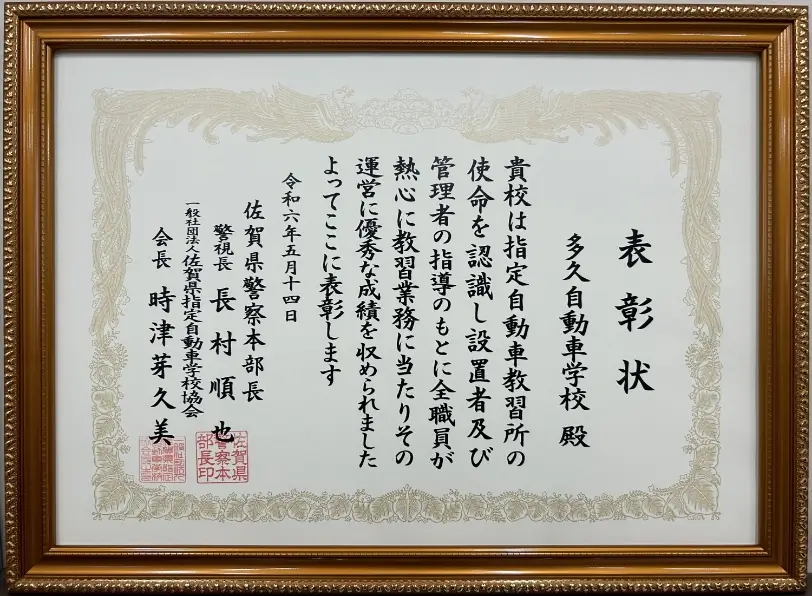 表彰状
多久自動車学校 殿
貴校は指定自動車教習所の
使命を認識し設置者及び
管理者の指導のもとに全職員が
熱心に教習業務に当たりその
運営に優秀な成績を収められました
よってここに表彰します
令和六年五月十四日
佐賀県警察本部長
警視長 長村順也
一般社団法人佐賀県指定自動車学校協会
会長 時津芽久美
佐賀県
警察本
部長印